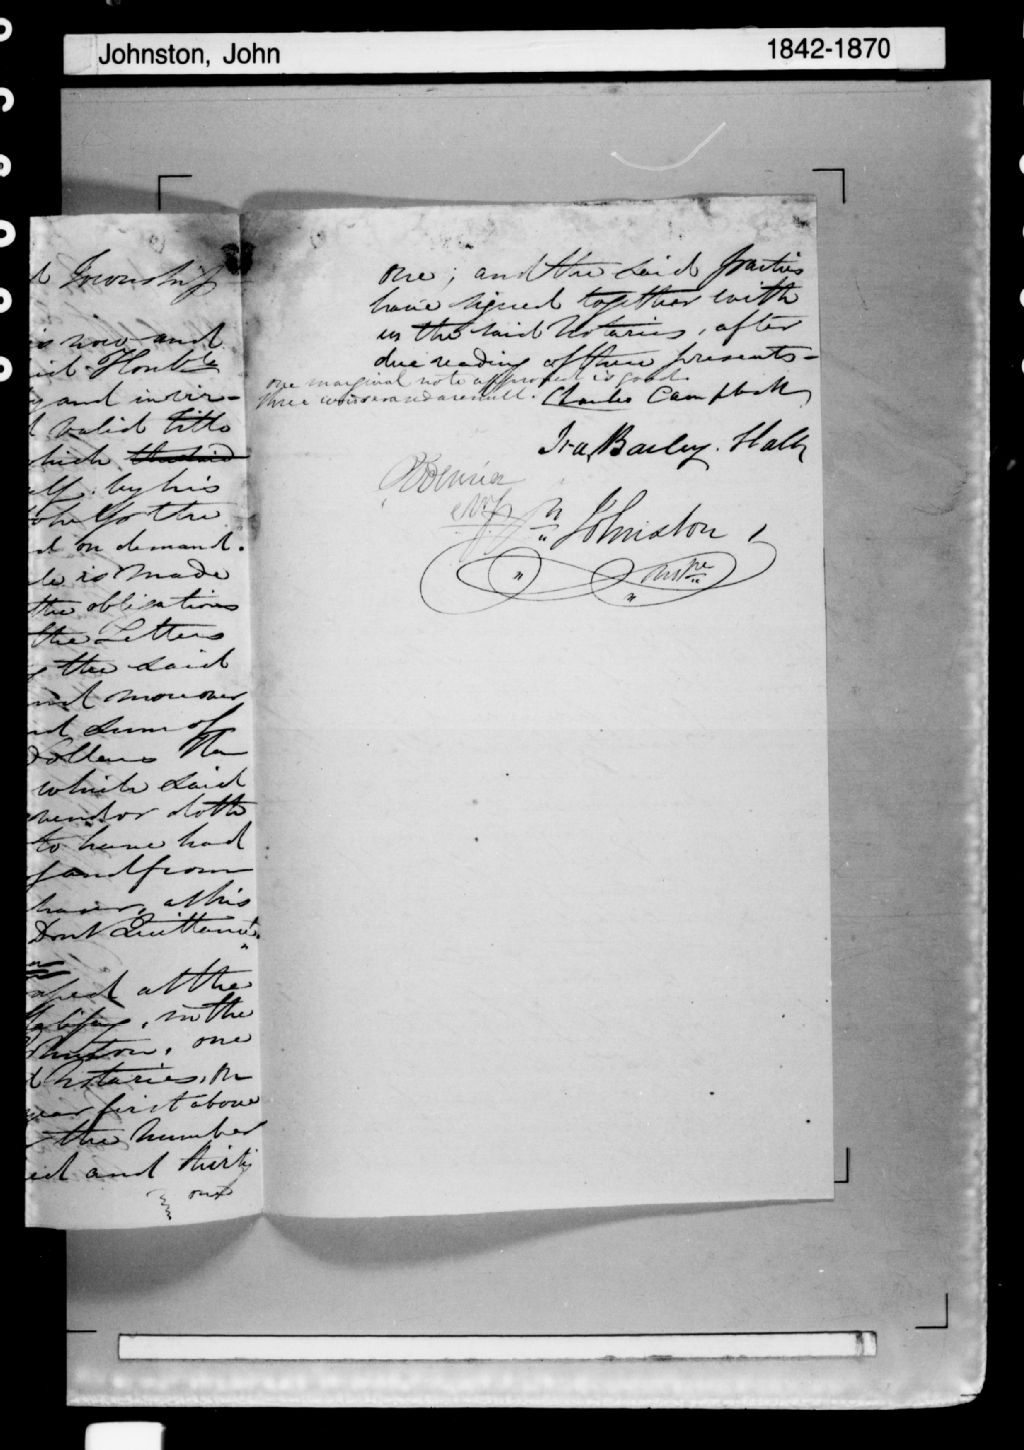 Johnston, John 1842-1870
d Township
is now and
said Honble
y and in vir-
d valid title
which the said
by his
for the
d on demand.
le is made
the obligations
the Letters
g the said
and moreover
and sum of
Dollars the
which said
vendor doth
to have had
of and from
at his
Dont Quittance.
passed at the
in the
Johnston, one
d Notaries, on
year first above
the number
ed and thirty
one
one; and the said parties
have signed together with
us the said Notaries, after
due reading of these presents-
one marginal note approved is good.
three words erased are null. Charles Campbell
Ira, Bailey. Hall
N.P.
J Johnston,